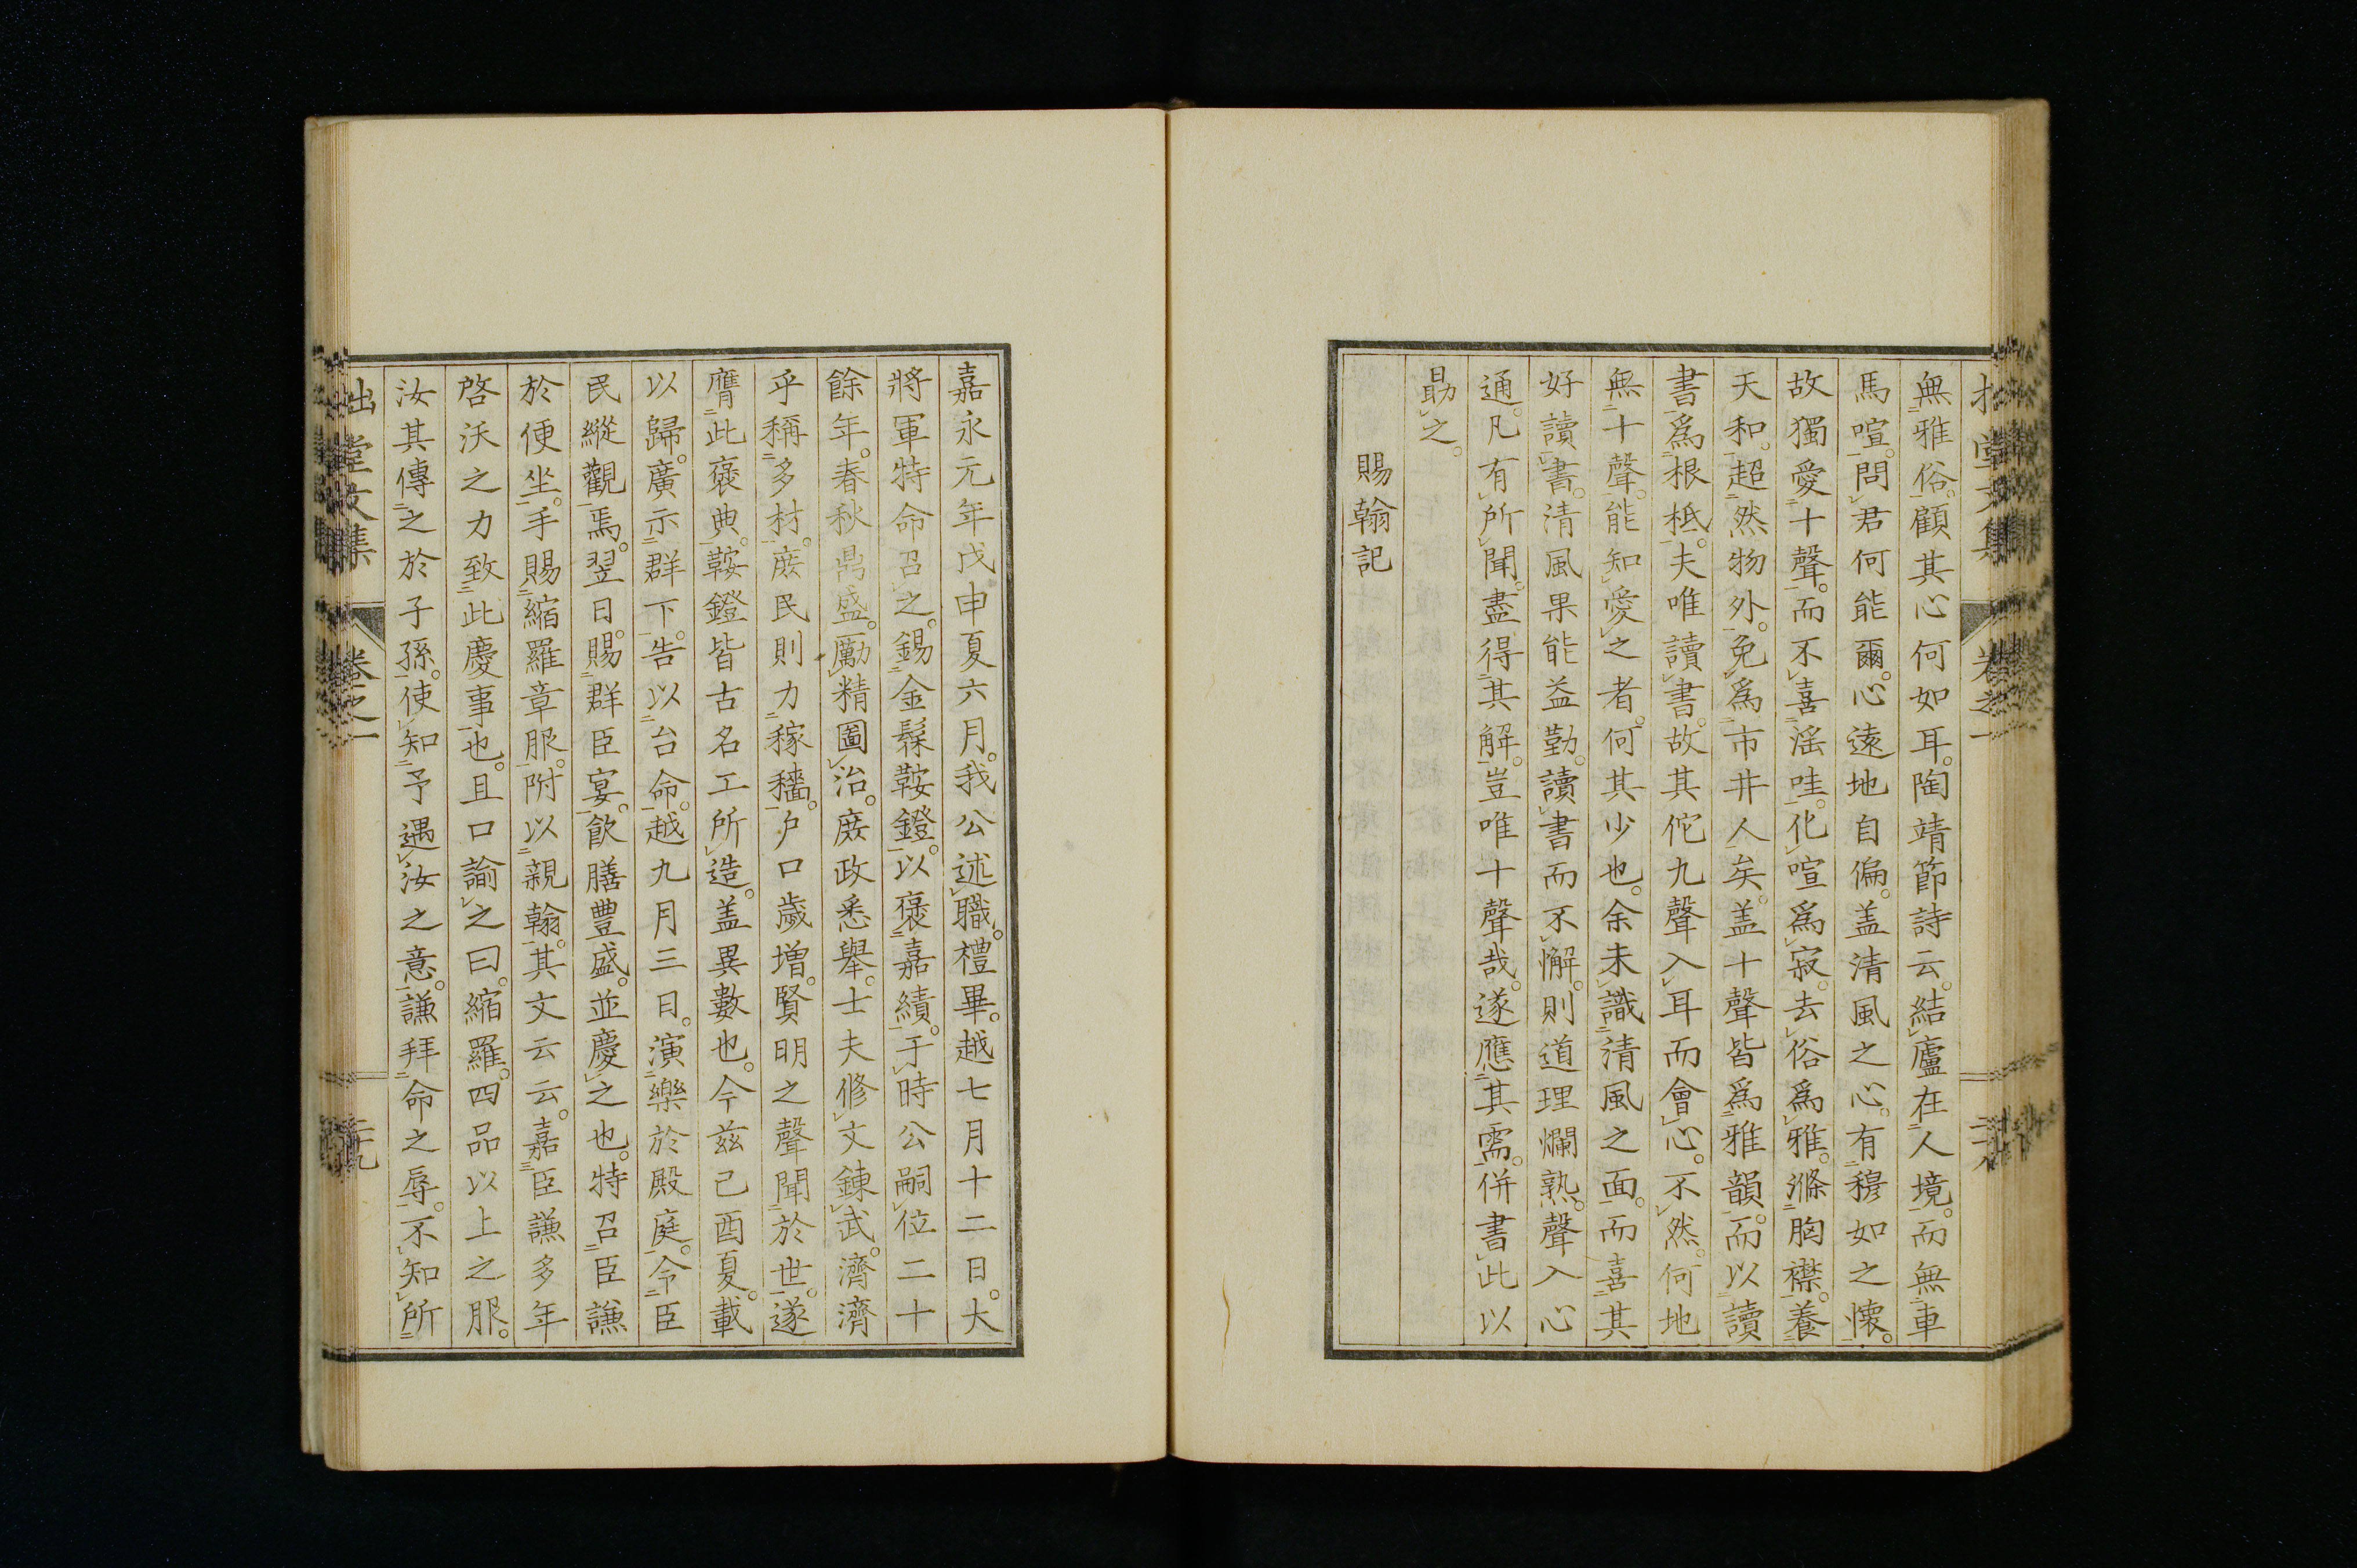 無雅俗。顧其心何如耳。陶靖節詩云。結廬在人境。而無車
馬喧。問君何能爾。心遠地自偏。盖清風之心。有穆如之懷。
故獨愛十聲。而不喜淫哇。化喧爲寂。去俗爲雅。滌胸襟。養
天和。超然物外。免爲市井人矣。盖十聲皆爲雅韻。而以讀
書爲根柢。夫唯讀書。故其佗九聲入耳而會心。不然。何地
無十聲。能知愛之者。何其少也。余未識清風之面。而喜其
好讀書。清風果能益勤。讀書而不懈。則道理爛熟。聲入心
通。凡有所聞。盡得其解。豈唯十聲哉。遂應其需。併書此以
勗之。
賜翰記
嘉永元年戊申夏六月。我公述職。禮畢。越七月十二日。大
將軍特命召之。錫金髹鞍鐙。以褒嘉績。于時公嗣位二十
餘年。春秋鼎盛。勵精圖治。庶政悉舉。士夫修文鍊武。濟濟
乎稱多材。庶民則力稼穡。戶口歲增。賢明之聲聞於世。遂
膺此褒典。鞍鐙皆古名工所造。盖異數也。今茲己酉夏。載
以歸。廣示群下。告以台命。越九月三日。演樂於殿庭。令臣
民縱觀焉。翌日。賜群臣宴。飲膳豊盛。並慶之也。特召臣謙
於便坐。手賜縮羅章服。附以親翰。其文云云。嘉臣謙多年
啓沃之力致此慶事也。且口諭之曰。縮羅。四品以上之服。
汝其傳之於子孫。使知予遇汝之意。謙拜命之辱。不知所
拙堂文集
卷之一
二十九